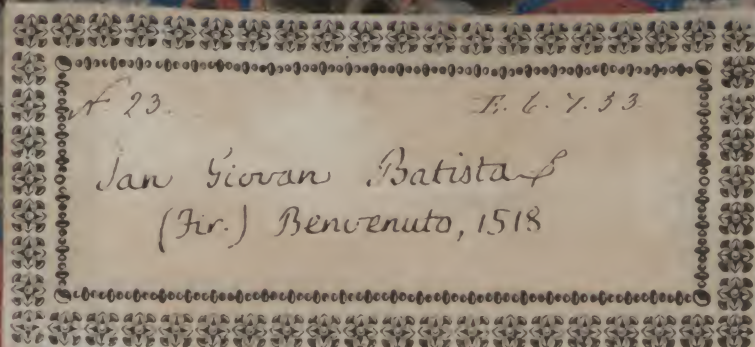 N 23. E. 6. 7. 53
San Giovan Batista
(Fir.) Benvenuto, 1518